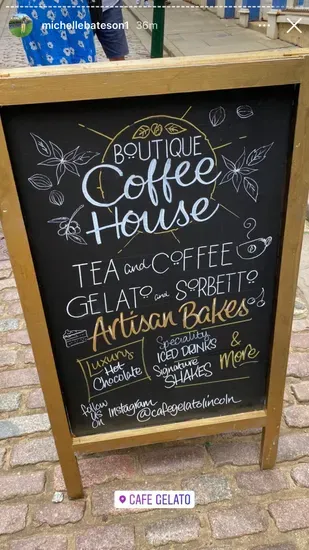 michellebateson1 36m
BOUTIQUE
Coffee
House
TEA and COFFEE
GELATO and SORBETTO
Artisan Bakes
Luxury
Hot
Chocolate
Speciality
ICED DRINKS
Signature
SHAKES
&
More
follow
us
on Instagram @cafegelatolincoln
CAFE GELATO